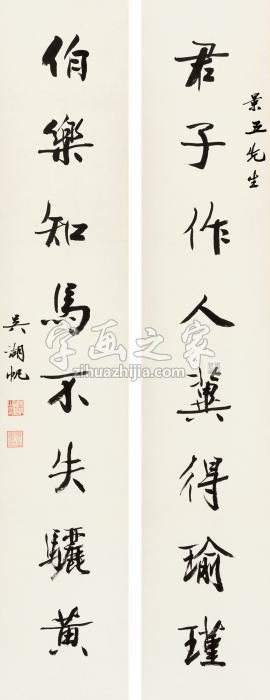 景丑先生
君子作人冀得瑜瑾
伯樂知馬不失驪黃
吳湖帆
字画之家
zihuazhijia.com